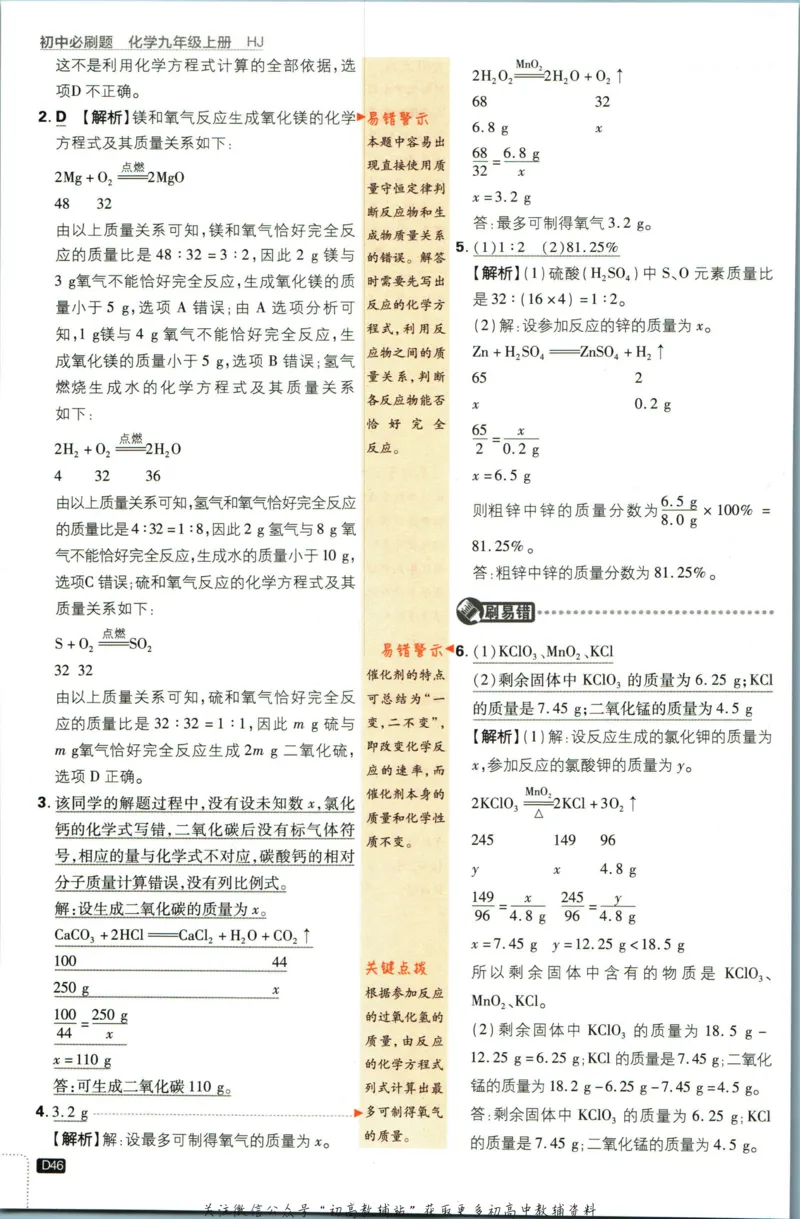 初中必刷题 化学九年级上册 HJ
这不是利用化学方程式计算的全部依据,选
项D 不正确。
2. D 【解析】镁和氧气反应生成氧化镁的化学
方程式及其质量关系如下:
2Mg + O₂ \xlongequal{点燃} 2MgO
48 32
由以上质量关系可知,镁和氧气恰好完全反
应的质量比是 48∶32 = 3∶2,因此 2 g 镁与
3 g氧气不能恰好完全反应,生成氧化镁的质
量小于 5 g,选项 A 错误;由 A 选项分析可
知,1 g镁与 4 g 氧气不能恰好完全反应,生
成氧化镁的质量小于 5 g,选项 B 错误;氢气
燃烧生成水的化学方程式及其质量关系
如下:
2H₂ + O₂ \xlongequal{点燃} 2H₂O
4 32 36
由以上质量关系可知,氢气和氧气恰好完全反应
的质量比是4∶32 = 1∶8,因此 2 g 氢气与 8 g 氧
气不能恰好完全反应,生成水的质量小于 10 g,
选项C 错误;硫和氧气反应的化学方程式及其
质量关系如下:
S + O₂ \xlongequal{点燃} SO₂
32 32
由以上质量关系可知,硫和氧气恰好完全反
应的质量比是 32∶32 = 1∶1,因此 m g 硫与
m g氧气恰好完全反应生成 2m g 二氧化硫,
选项 D 正确。
3. 该同学的解题过程中,没有设未知数 x,氯化
钙的化学式写错,二氧化碳后没有标气体符
号,相应的量与化学式不对应,碳酸钙的相对
分子质量计算错误,没有列比例式。
解:设生成二氧化碳的质量为 x。
CaCO₃ + 2HCl ══ CaCl₂ + H₂O + CO₂↑
100 44
250 g x
100/44 = 250 g/x
x = 110 g
答:可生成二氧化碳 110 g。
4. 3.2 g
【解析】解:设最多可制得氧气的质量为 x。
D46
易错警示
本题中容易出
现直接使用质
量守恒定律判
断反应物和生
成物质量关系
的错误。解答
时需要先写出
反应的化学方
程式,利用反
应物之间的质
量关系,判断
各反应物能否
恰好完全
反应。
易错警示
催化剂的特点
可总结为“一
变,二不变”,
即改变化学反
应的速率,而
催化剂本身的
质量和化学性
质不变。
关键点拨
根据参加反应
的过氧化氢的
质量,由反应
的化学方程式
列式计算出最
多可制得氧气
的质量。
2H₂O₂ \xlongequal{MnO₂} 2H₂O + O₂↑
68 32
6.8 g x
68/32 = 6.8 g/x
x = 3.2 g
答:最多可制得氧气 3.2 g。
5. (1)1∶2 (2)81.25%
【解析】(1)硫酸(H₂SO₄)中 S、O 元素质量比
是 32∶(16×4) = 1∶2。
(2)解:设参加反应的锌的质量为 x。
Zn + H₂SO₄ ══ ZnSO₄ + H₂↑
65 2
x 0.2 g
65/2 = x/0.2 g
x = 6.5 g
则粗锌中锌的质量分数为 6.5 g/8.0 g × 100% =
81.25%。
答:粗锌中锌的质量分数为 81.25%。
刷易错
6. (1)KClO₃、MnO₂、KCl
(2)剩余固体中 KClO₃ 的质量为 6.25 g;KCl
的质量是 7.45 g;二氧化锰的质量为 4.5 g
【解析】(1)解:设反应生成的氯化钾的质量为
x,参加反应的氯酸钾的质量为 y。
2KClO₃ \xlongequal[△]{MnO₂} 2KCl + 3O₂↑
245 149 96
y x 4.8 g
149/96 = x/4.8 g 245/96 = y/4.8 g
x = 7.45 g y = 12.25 g < 18.5 g
所以剩余固体中含有的物质是 KClO₃、
MnO₂、KCl。
(2)剩余固体中 KClO₃ 的质量为 18.5 g -
12.25 g = 6.25 g;KCl 的质量是 7.45 g;二氧化
锰的质量为 18.2 g - 6.25 g - 7.45 g = 4.5 g。
答:剩余固体中 KClO₃ 的质量为 6.25 g;KCl
的质量是 7.45 g;二氧化锰的质量为 4.5 g。
关注微信公众号“初高教辅站”获取更多初高中教辅资料